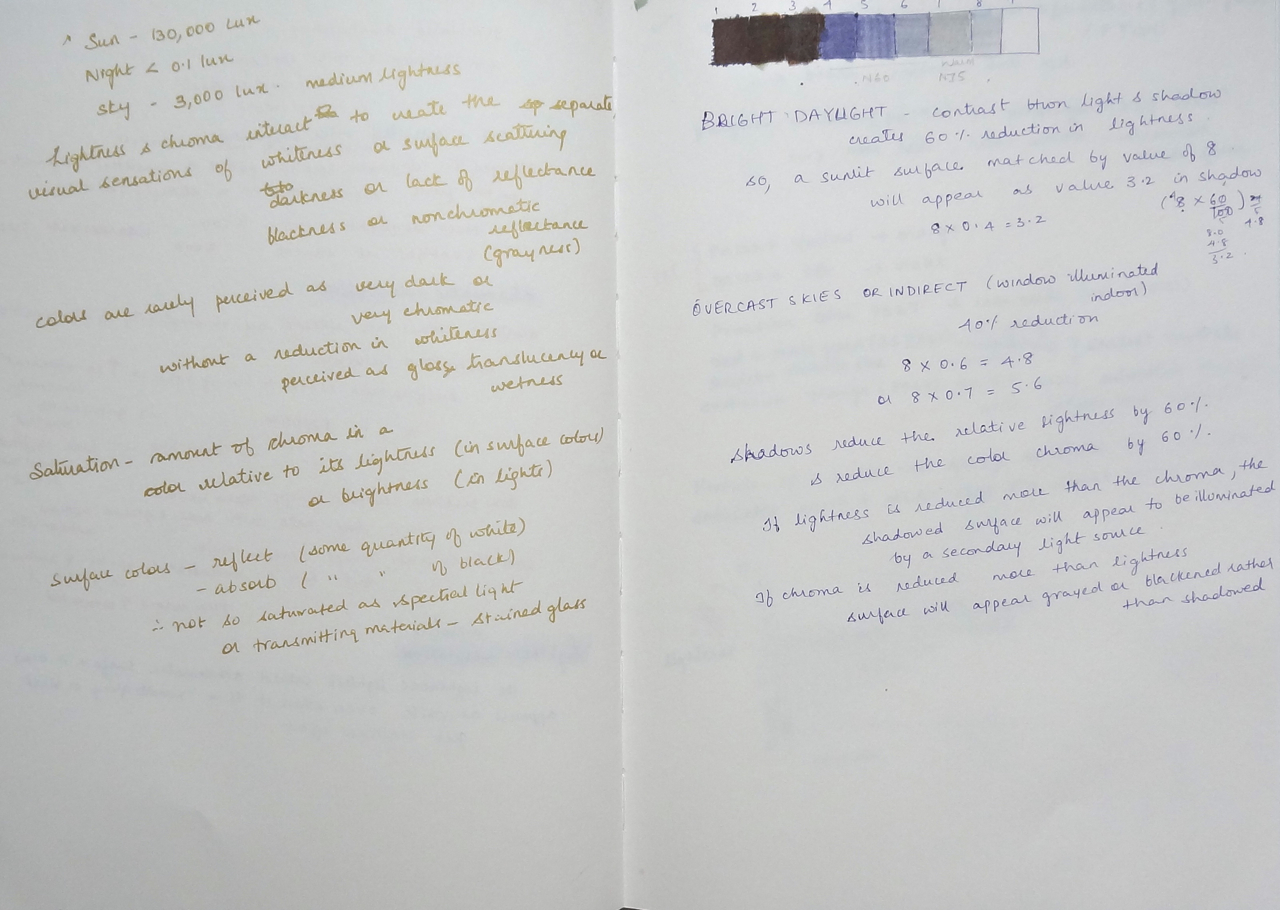 Sun - 130,000 lux
Night < 0.1 lux
Sky - 3,000 lux. medium lightness
Lightness & chroma interact to create the separate
visual sensations of whiteness or surface scattering
darkness or lack of reflectance
blackness or nonchromatic
reflectance
(grayness)
colors are rarely perceived as very dark or
very chromatic
without a reduction in whiteness
perceived as gloss, translucency or
wetness
Saturation - amount of chroma in a
color relative to its lightness (in surface colors)
or brightness (in lights)
Surface colors - reflect (some quantity of white)
- absorb ( " " of black)
∴ not so saturated as spectral light
or transmitting materials - stained glass
1 2 3 4 5 6 7 8 9
N60 N75
BRIGHT DAYLIGHT - contrast btwn light & shadow
creates 60% reduction in lightness.
so, a sunlit surface matched by value of 8
will appear as value 3.2 in shadow
8 x 0.4 = 3.2
(8 x 60/100)
4.8
8.0
4.8
3.2
OVERCAST SKIES OR INDIRECT (window illuminated
indoor)
40% reduction
8 x 0.6 = 4.8
or 8 x 0.7 = 5.6
Shadows reduce the relative lightness by 60%.
& reduce the color chroma by 60%.
If lightness is reduced more than the chroma, the
shadowed surface will appear to be illuminated
by a secondary light source.
If chroma is reduced more than lightness
surface will appear grayed or blackened rather
than shadowed